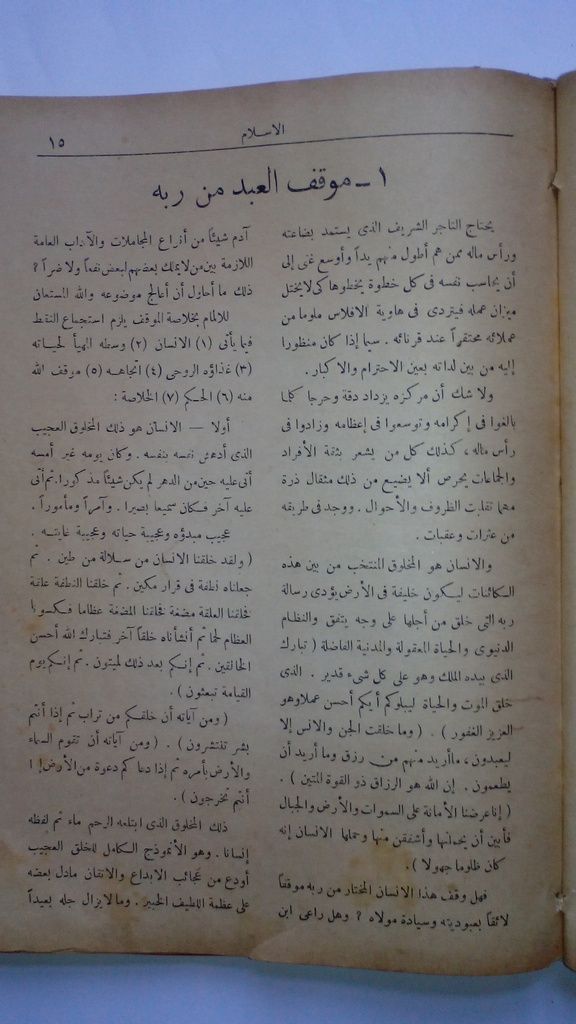 الاسلام
١٥
١ ـ موقف العبد من ربه
يحتاج التاجر الشريف الذى يستمد بضاعته
ورأس ماله ممن هم أطول منهم يداً وأوسع غنى إلى
أن يحاسب نفسه فى كل خطوة يخطوها كى لا يختل
ميزان عمله فيتردى فى هاوية الافلاس ملوما من
عملائه محتقراً عند قرنائه . سيما إذا كان منظورا
إليه من بين لداته بعين الاحترام والاكبار .
ولا شك أن مركزه يزداد دقة وحرجا كلما
بالغوا فى إكرامه وتوسعوا فى إعظامه وزادوا فى
رأس ماله ، كذلك كل من يشعر بثقة الأفراد
والجماعات يحرص ألا يضيع من ذلك مثقال ذرة
مهما تقلبت الظروف والأحوال . ووجد فى طريقه
من عثرات وعقبات .
والانسان هو المخلوق المنتخب من بين هذه
الكائنات ليكون خليفة فى الأرض يؤدى رسالة
ربه التى خلق من أجلها على وجه يتفق والنظام
الدنيوى والحياة المعقولة والمدنية الفاضلة ( تبارك
الذى بيده الملك وهو على كل شىء قدير . الذى
خلق الموت والحياة ليبلوكم أيكم أحسن عملا وهو
العزيز الغفور ) . ( وما خلقت الجن والانس إلا
ليعبدون ، ما أريد منهم من رزق وما أريد أن
يطعمون . إن الله هو الرزاق ذو القوة المتين ) .
( إنا عرضنا الأمانة على السموات والأرض والجبال
فأبين أن يحملنها وأشفقن منها وحملها الانسان إنه
كان ظلوما جهولا ) .
فهل وقف هذا الانسان المختار من ربه موقفاً
لائقاً بعبوديته وسيادة مولاه ؟ وهل راعى ابن
آدم شيئاً من أنواع المجاملات والآداب العامة
اللازمة بين من لا يملك بعضهم لبعض نفعاً ولا ضراً ؟
ذلك ما أحاول أن أعالج موضوعه والله المستعان
للالمام بخلاصة الموقف يلزم استجماع النقط
فيما يأتى (١) الانسان (٢) وسطه المهيأ لحياته
(٣) غذاؤه الروحى (٤) اتجاهه (٥) موقف الله
منه (٦) الحكم (٧) الخلاصة :
أولا — الانسان هو ذلك المخلوق العجيب
الذى أدهش نفسه بنفسه . وكان يومه غير أمسه
أتى عليه حين من الدهر لم يكن شيئاً مذكورا . ثم أتى
عليه آخر فكان سميعا بصيرا . وآمراً ومأموراً .
عجيب مبدؤه وعجيبة حياته وعجيبة غايته .
( ولقد خلقنا الانسان من سلالة من طين . ثم
جعلناه نطفة فى قرار مكين . ثم خلقنا النطفة علقة
فخلقنا العلقة مضغة فخلقنا المضغة عظاما فكسونا
العظام لحما ثم أنشأناه خلقاً آخر فتبارك الله أحسن
الخالقين . ثم إنكم بعد ذلك لميتون . ثم إنكم يوم
القيامة تبعثون ) .
( ومن آياته أن خلقكم من تراب ثم إذا أنتم
بشر تنتشرون ) . ( ومن آياته أن تقوم السماء
والأرض بأمره ثم إذا دعاكم دعوة من الأرض إذا
أنتم تخرجون ) .
ذلك المخلوق الذى ابتلعه الرحم ماء ثم لفظه
إنسانا . وهو الأنموذج الكامل للخلق العجيب
أودع من عجائب الابداع والاتقان ما دل بعضه
على عظمة اللطيف الخبير . وما لا يزال جله بعيداً